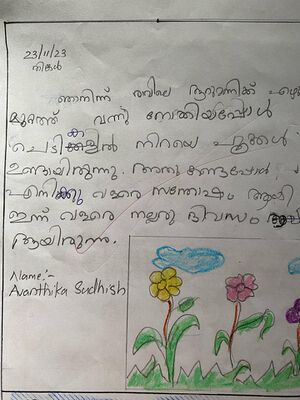 23/11/23
തിങ്കൾ
ഞാനിന്ന് രാവിലെ ആറുമണിക്ക് എഴു
മുറ്റത്ത് വന്നു നോക്കിയപ്പോൾ
ചെടികളിൽ നിറയെ പൂക്കൾ
ഉണ്ടായിരുന്നു. അതു കണ്ടപ്പോൾ
എനിക്കു വളരെ സന്തോഷം ആയി
ഇന്ന് വളരെ നല്ലൊരു ദിവസം
ആയിരുന്നു.
Name:-
Avanthika Sudhish